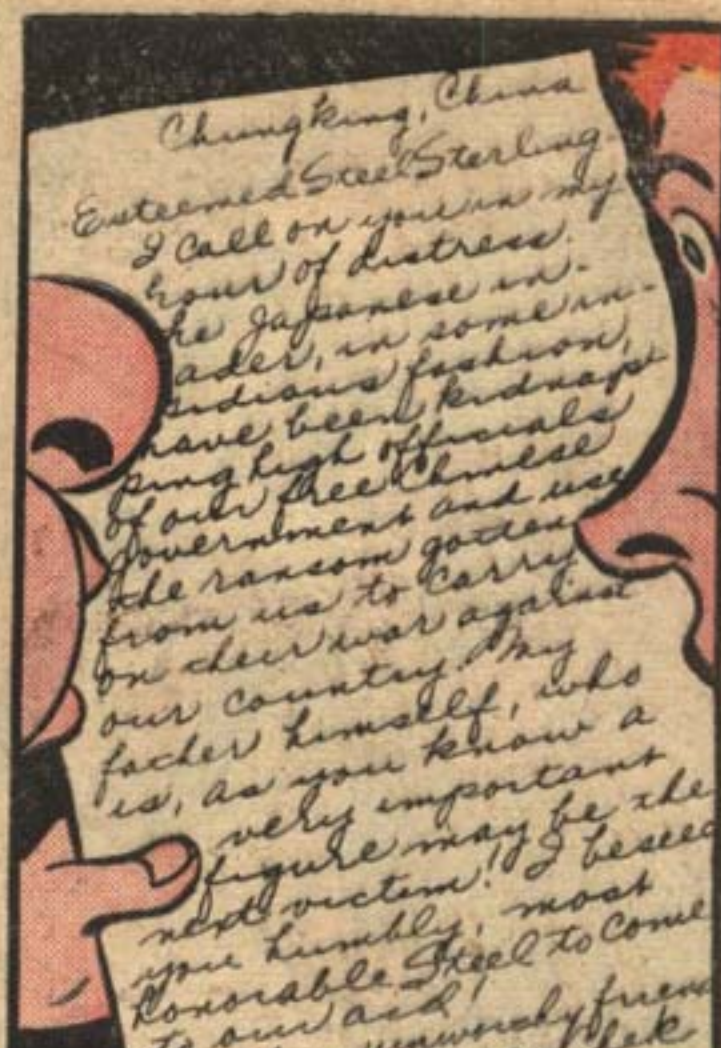 Chungking, China
Esteemed Steel Sterling-
I call on you in my
hour of distress.
he Japanese in-
ader, in some in-
sidious fashion,
have been kidnap-
ping high officials
of our free Chinese
government and use
the ransom gotten
from us to carry
on their war against
our country. My
father himself, who
is, as you know a
very important
figure may be the
next victim! I beseec
you humbly, most
honorable Steel to come
to our aid!
unworthy frien